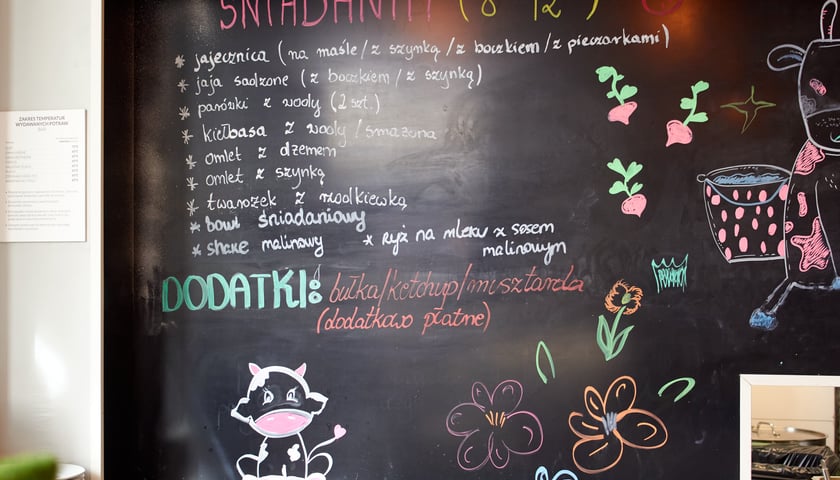 ŚNIADANIA (8-12)
* jajecznica (na maśle/z szynką/z boczkiem/z pieczarkami)
* jaja sadzone (z boczkiem/z szynką)
* parówki z wody (2 szt.)
* kiełbasa z wody/smażona
* omlet z dżemem
* omlet z szynką
* twarożek z rzodkiewką
* bowl śniadaniowy
* shake malinowy
* ryż na mleku z sosem malinowym
DODATKI: bułka/ketchup/musztarda
(dodatkowo płatne)
ZAKRES TEMPERATUR
WYDAWANYCH POTRAW